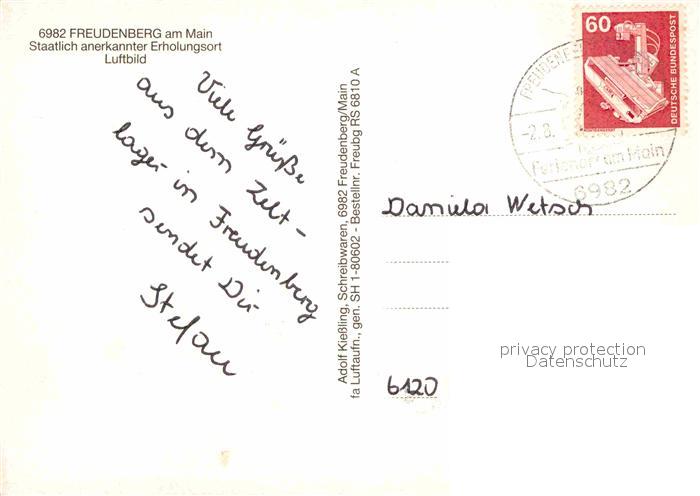 6982 FREUDENBERG am Main
Staatlich anerkannter Erholungsort
Luftbild
Viele Grüße
aus dem Zelt-
lager in Freudenberg
sendet Dir
Stefan
Adolf Kießling, Schreibwaren, 6982 Freudenberg/Main
fa Luftaufn., gen. SH 1-80602 - Bestellnr. Freubg RS 6810 A
60
DEUTSCHE BUNDESPOST
-2.8.
Ferienort am Main
6982
Daniela Wetsch
privacy protection
Datenschutz
6120